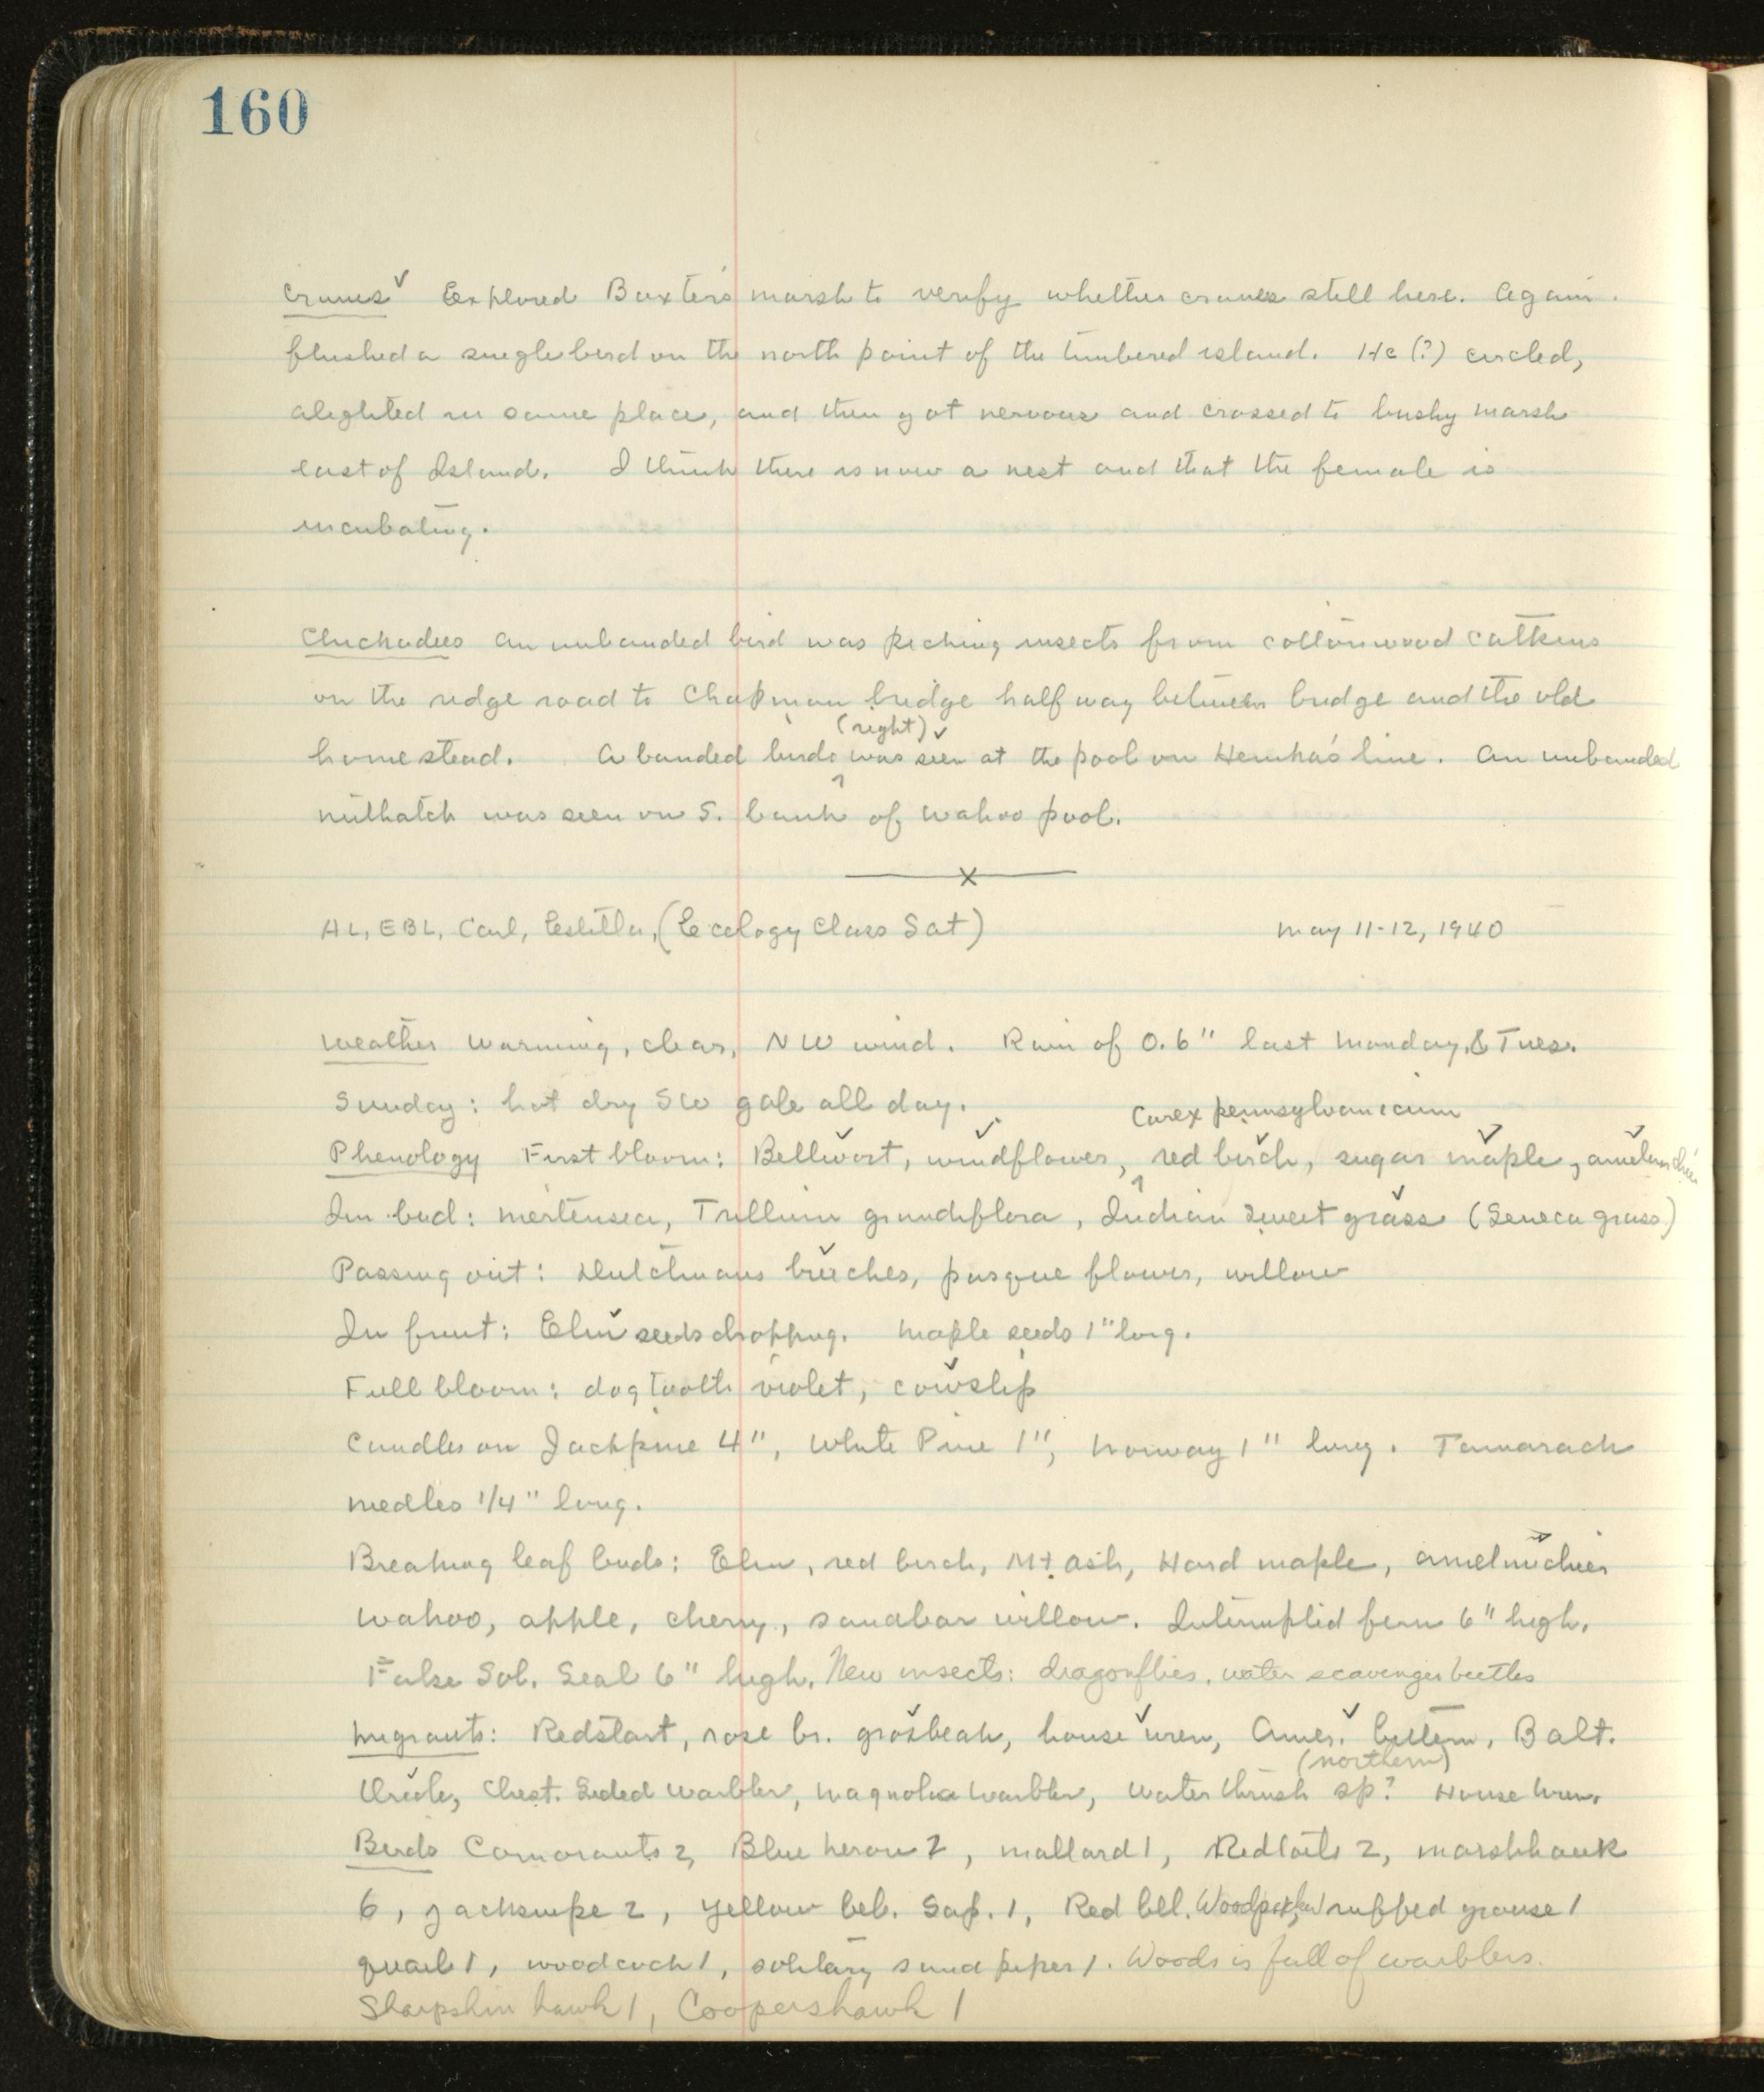 160
Cranes ✓ Explored Baxter's marsh to verify whether cranes still here. Again
flushed a single bird on the north point of the timbered island. He (?) circled,
alighted in same place, and then got nervous and crossed to bushy marsh
east of Island. I think there is now a nest and that the female is
incubating.
Chickadees An unbanded bird was picking insects from cottonwood catkins
on the ridge road to Chapman bridge half way between bridge and the old
(right) ✓
homestead. A banded birds was seen at the pool on line. An unbanded
nuthatch was seen on S. bank of wahoo pool.
x
AL, EBL, Carl, Estella, (Ecology Class Sat) May 11-12, 1940
Weather Warming, clear, NW wind. Rain of 0.6" last Monday, & Tues.
Sunday: hot dry SW gale all day.
Carex pennsylvanicum
Phenology First bloom: Bellwort, windflower, red birch, sugar maple, amelanchier
In bud: mertensia, Trillium grandiflora, Indian Sweet grass (Seneca grass)
Passing out: Dutchmans britches, pasque flower, willow
In fruit: Elm seeds dropping. Maple seeds 1" long.
Full bloom: dog tooth violet, cowslip
Candles on Jackpine 4", White Pine 1", Norway 1" long. Tamarack
needles 1/4" long.
Breaking leaf buds: Elm, red birch, Mt. Ash, Hard maple, amelanchier
wahoo, apple, cherry, sandbar willow. Interrupted fern 6" high.
False Sol. Seal 6" high. New insects: dragonflies, water scavenger beetles
Migrants: Redstart, rose br. grosbeak, house wren, Amer. bittern, Balt.
(northern)
Oriole, Chest. Sided Warbler, magnolia Warbler, Water thrush sp? House Wren.
Birds Cormorants 2, Blue heron 2, mallard 1, Redtails 2, marshhawk
6, jacksnipe 2, yellow bel. Sap. 1, Red bel. Woodpecker, ruffed grouse 1
quail 1, woodcock 1, solitary sand piper 1. Woods is full of warblers.
Sharpshin hawk 1, Coopershawk 1